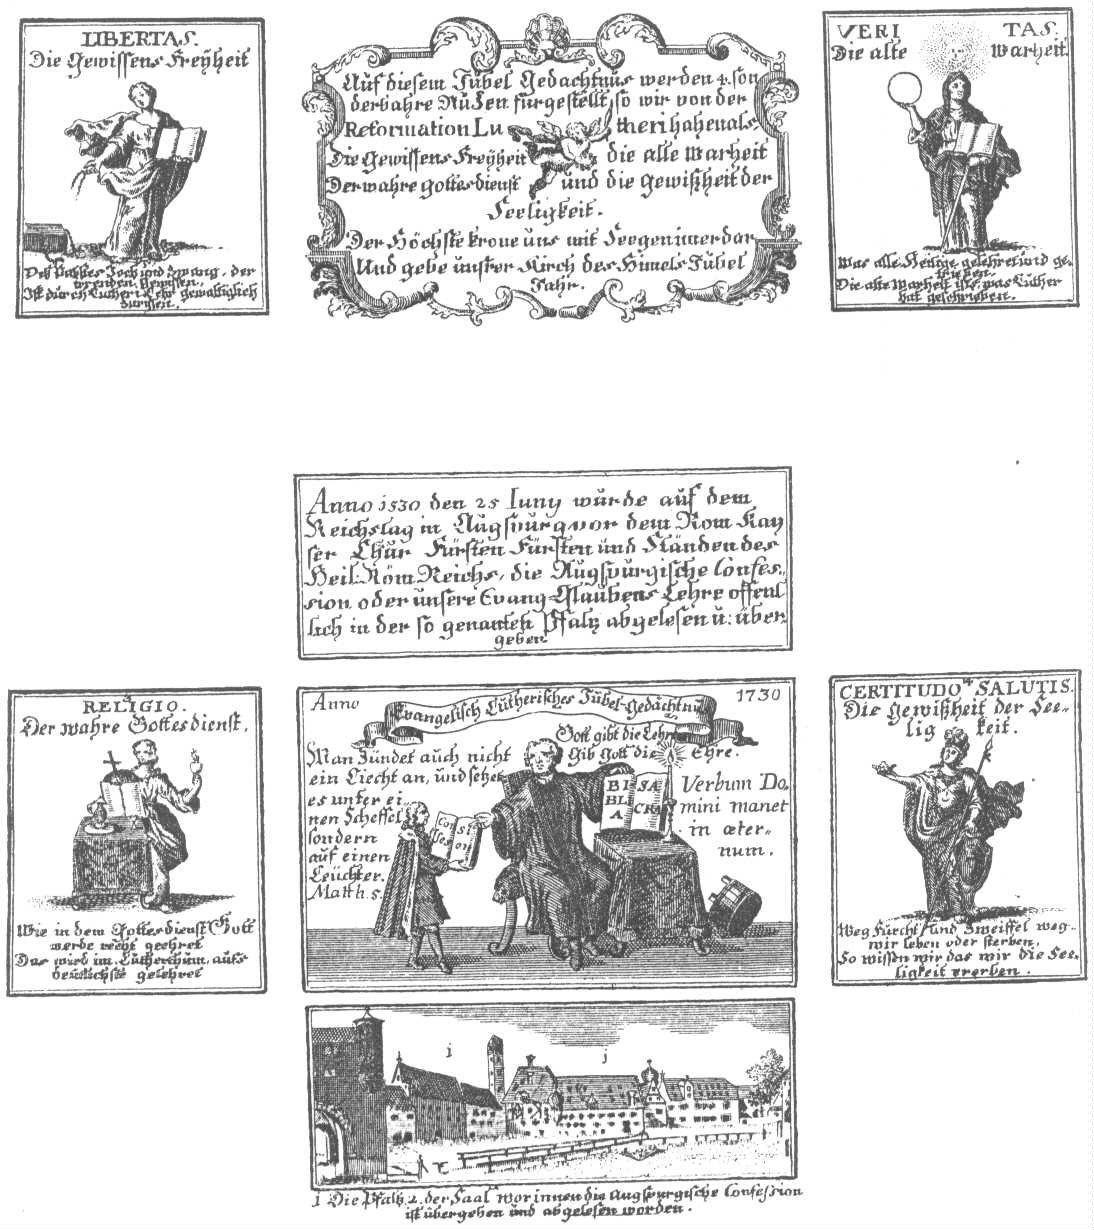 LIBERTAS.
Die Gewissens Freÿheit
Des Pabstes Joch und Zwang, der
werden Gewissen,
Ist durch Lutheri Lehr gewaltiglich
zurissen.
Auf diesem Jubel Gedachtnus werden 4. son
derbahre Nutzen furgestellt so wir von der
Reformation Lutheri haben als.
Die Gewissens Freÿheit die alte Warheit
Der wahre gottesdienst und die gewißheit der
Seeligkeit.
Der Höchste krone uns mit Seegen imerdar
Und gebe unsrer Kirch des Himels Jubel
Jahr.
VERITAS.
Die alte Warheit.
Was alle Heilige gelehret und ge-
trieben.
Die alte Warheit ists, was Luther
hat geschrieben.
Anno 1530 den 25 Iuny wurde auf dem
Reichstag in Augspurg vor dem Rom Kay
ser Chur Fürsten Fürsten und Ständen des
Heil: Röm. Reichs, die Augspurgische Confes-
sion oder unsere Evang Glaubens Lehre offent
lich in der so genanten Pfaltz abgelesen u: über
geben
RELIGIO.
Der wahre Gottesdienst.
Wie in dem Gottesdienst Gott
werde recht geehret
Das wird im Lutherthum aufs
deutlichste gelehret
Anno 1730
Evangelisch Lutherisches Jubel-Gedächtnus
Gott gibt die Lehre
Gib Gott die Ehre.
Man Zündet auch nicht
ein Liecht an, und setzet
es unter ei-
nen Scheffel
sondern
auf einen
Leüchter.
Matth. 5.
Confession
BIBLIA SACRA
Verbum Do,
mini manet
in æter-
num.
CERTITUDO SALUTIS.
Die gewißheit der See-
ligkeit.
Weg Furcht und Zweiffel weg-
wir leben oder sterben,
So wissen wir das wir die See-
ligkeit ererben.
i j
1 Die Pfaltz 2. der Saal worinnen die Augspurgische Confession
ist übergeben und abgelesen worden.